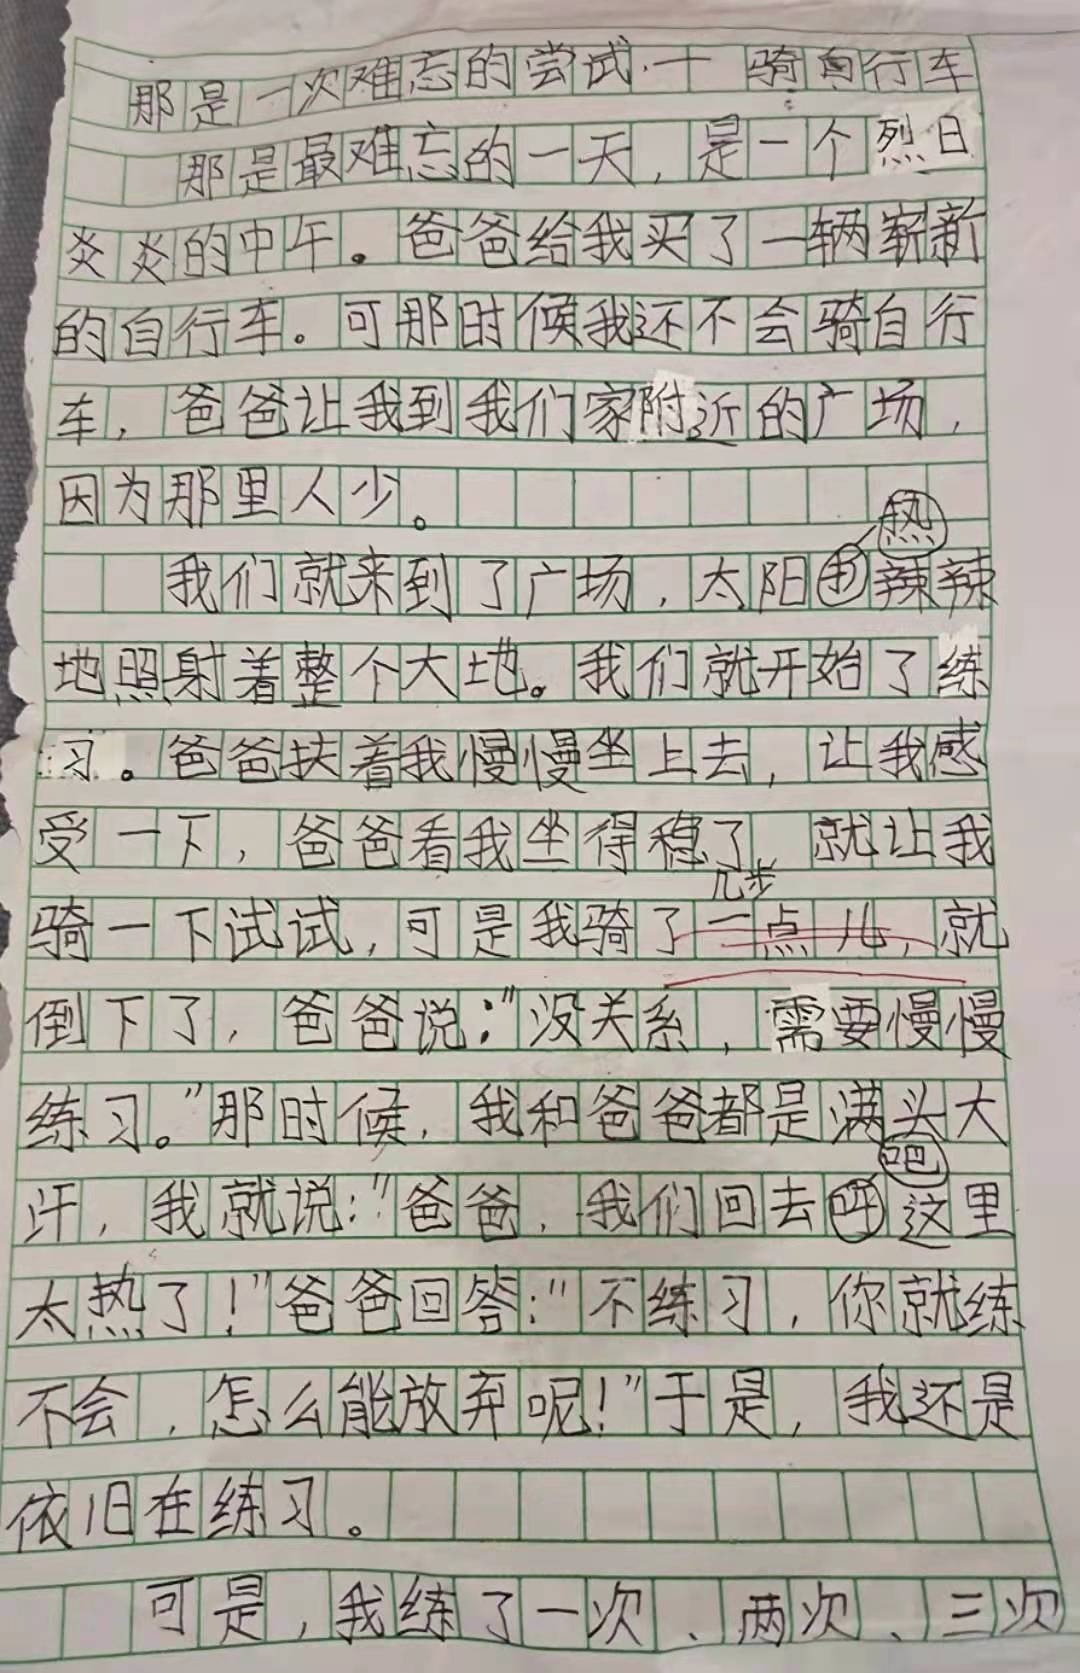 那是一次难忘的尝试.一 骑自行车
那是最难忘的一天，是一个烈日
炎炎的中午。爸爸给我买了一辆崭新
的自行车。可那时候我还不会骑自行
车，爸爸让我到我们家附近的广场，
因为那里人少。
热
我们就来到了广场，太阳辣辣
地照射着整个大地。我们就开始了练
习。爸爸扶着我慢慢坐上去，让我感
受一下，爸爸看我坐得稳了 就让我
几步
骑一下试试，可是我骑了一点儿，就
倒下了，爸爸说："没关系，需要慢慢
练习。"那时候，我和爸爸都是满头大
吧
汗，我就说："爸爸，我们回去呼这里
太热了！"爸爸回答："不练习，你就练
不会，怎么能放弃呢！"于是，我还是
依旧在练习。
可是，我练了一次、两次、三次